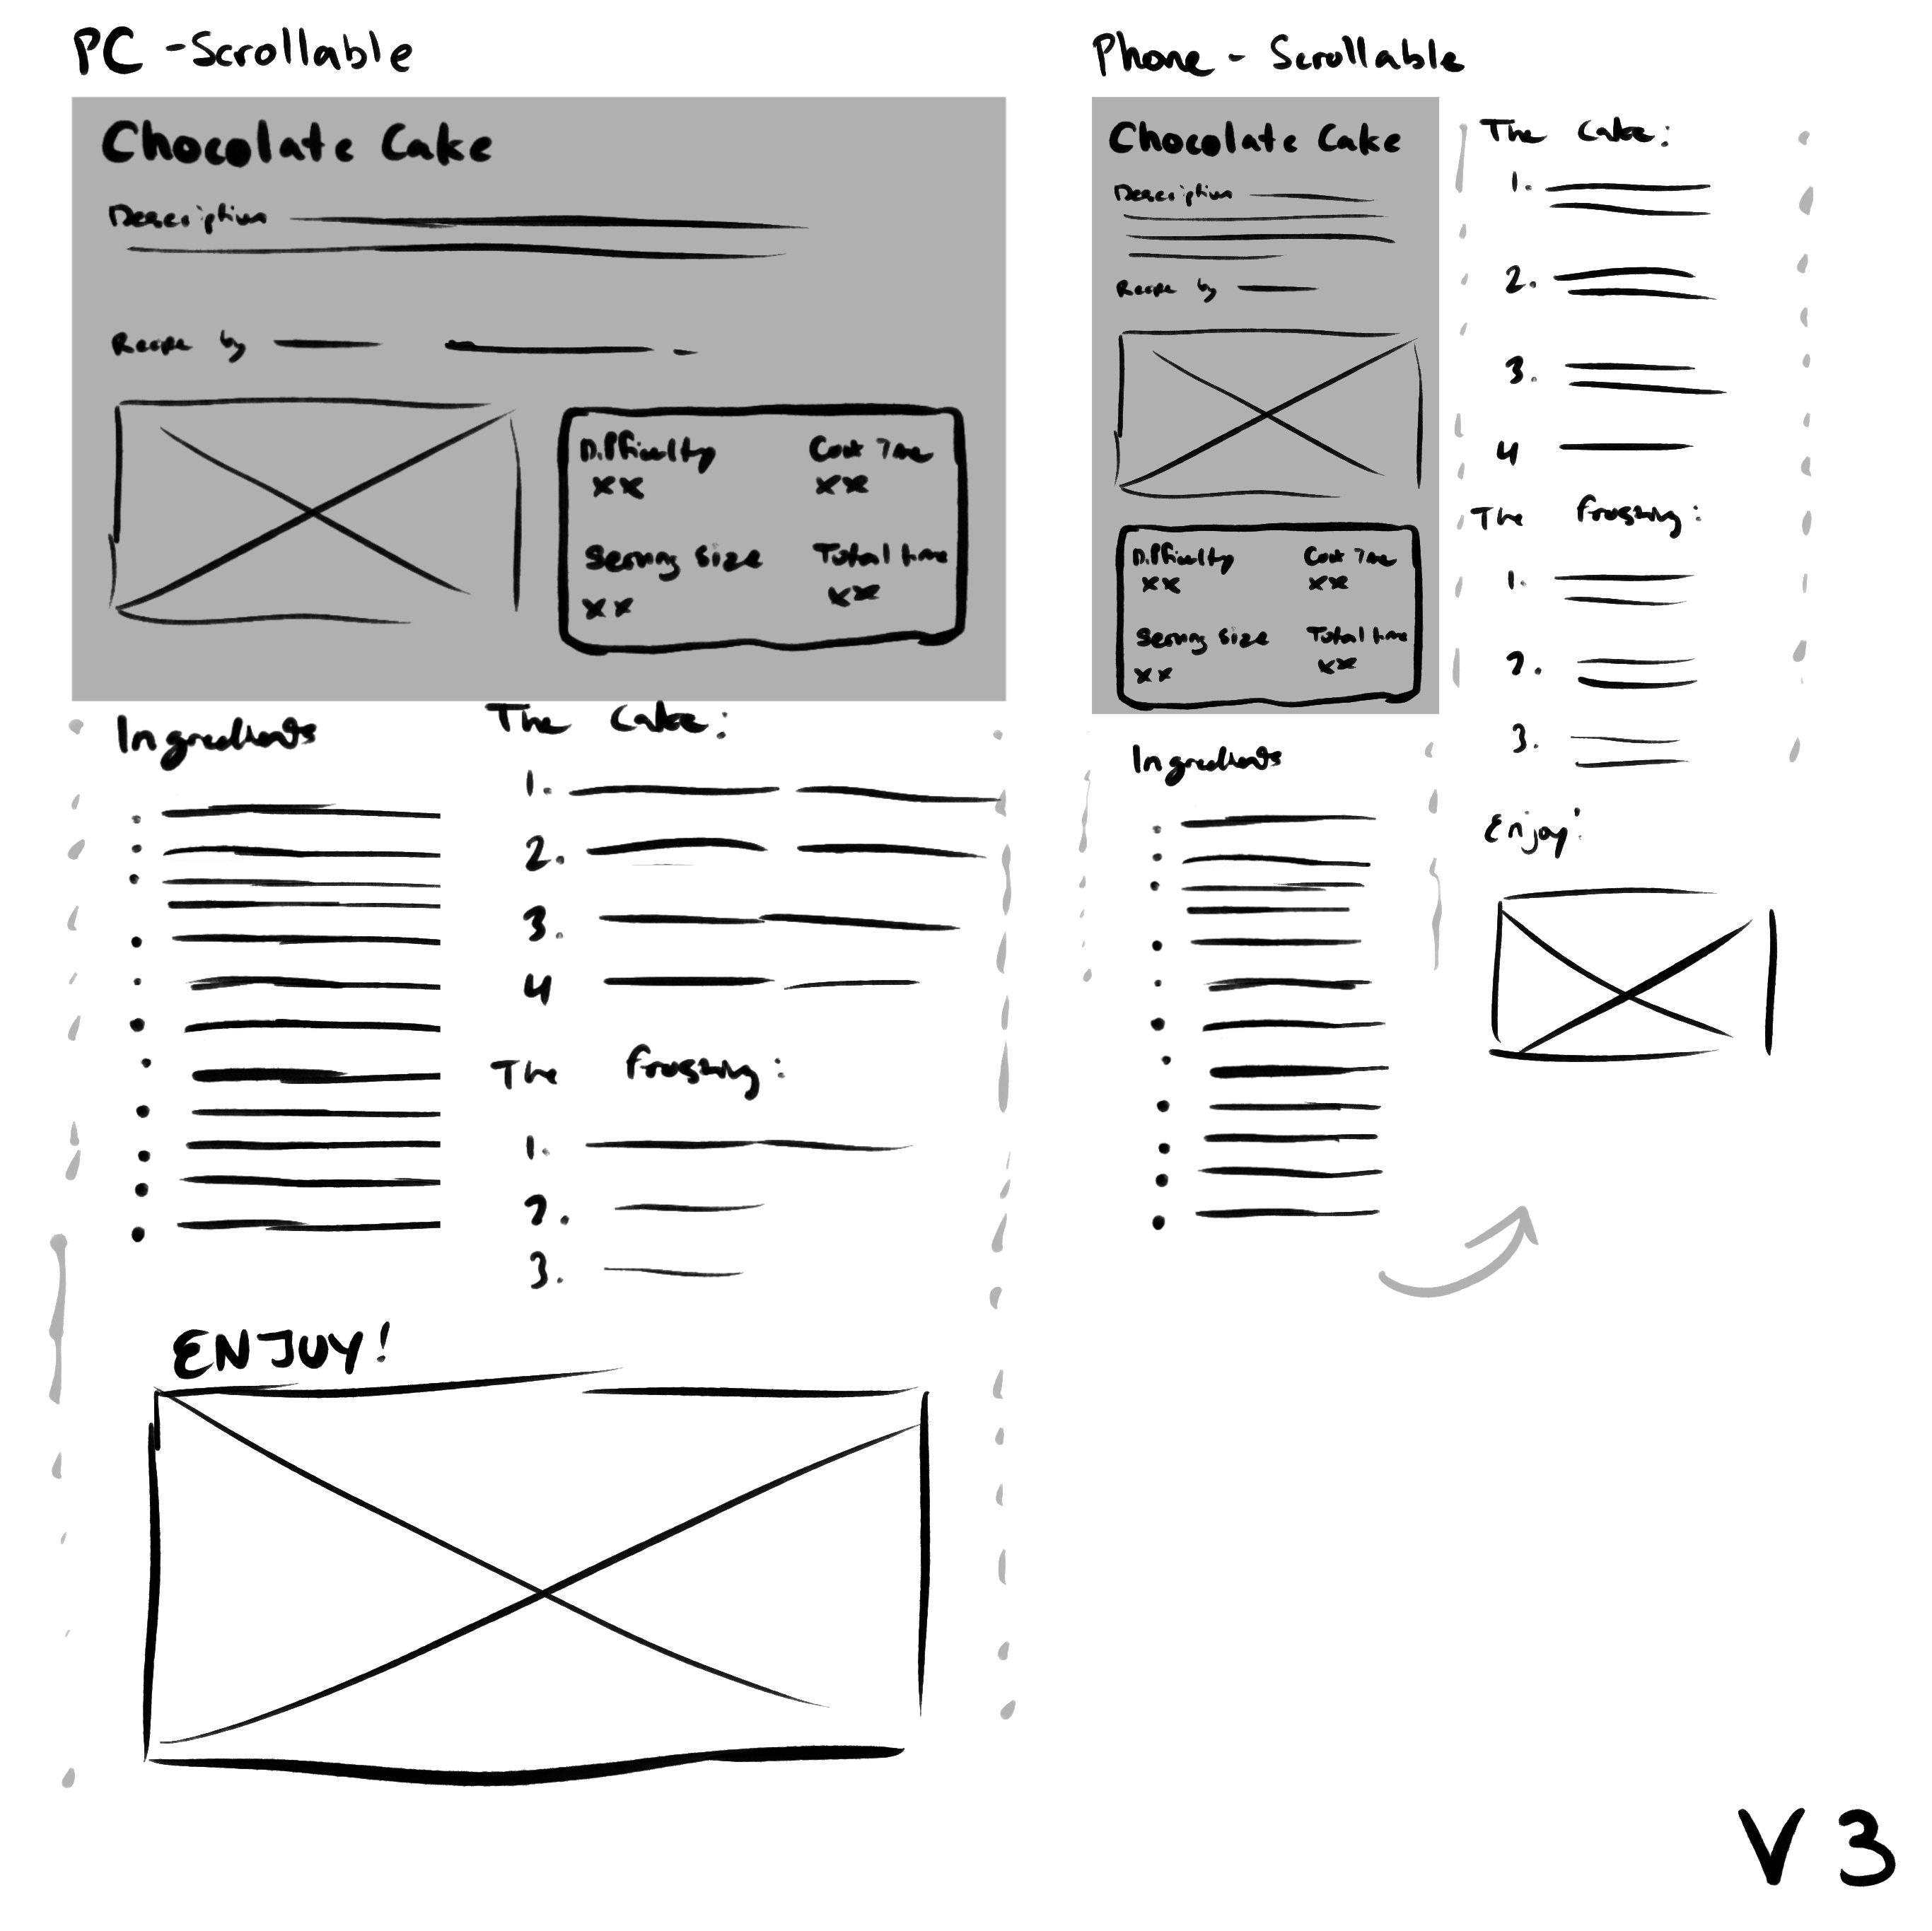 PC - Scrollable
Chocolate Cake
Description
Recipe by
Difficulty Cook Time
xx xx
Serving size Total time
xx xx
Ingredients
The Cake:
1.
2.
3.
4
The frosting:
1.
2.
3.
ENJOY!
Phone - Scrollable
Chocolate Cake
Description
Recipe by
Difficulty Cook Time
xx xx
Serving size Total time
xx xx
Ingredients
The Cake:
1.
2.
3.
4
The frosting:
1.
2.
3.
Enjoy!
V3